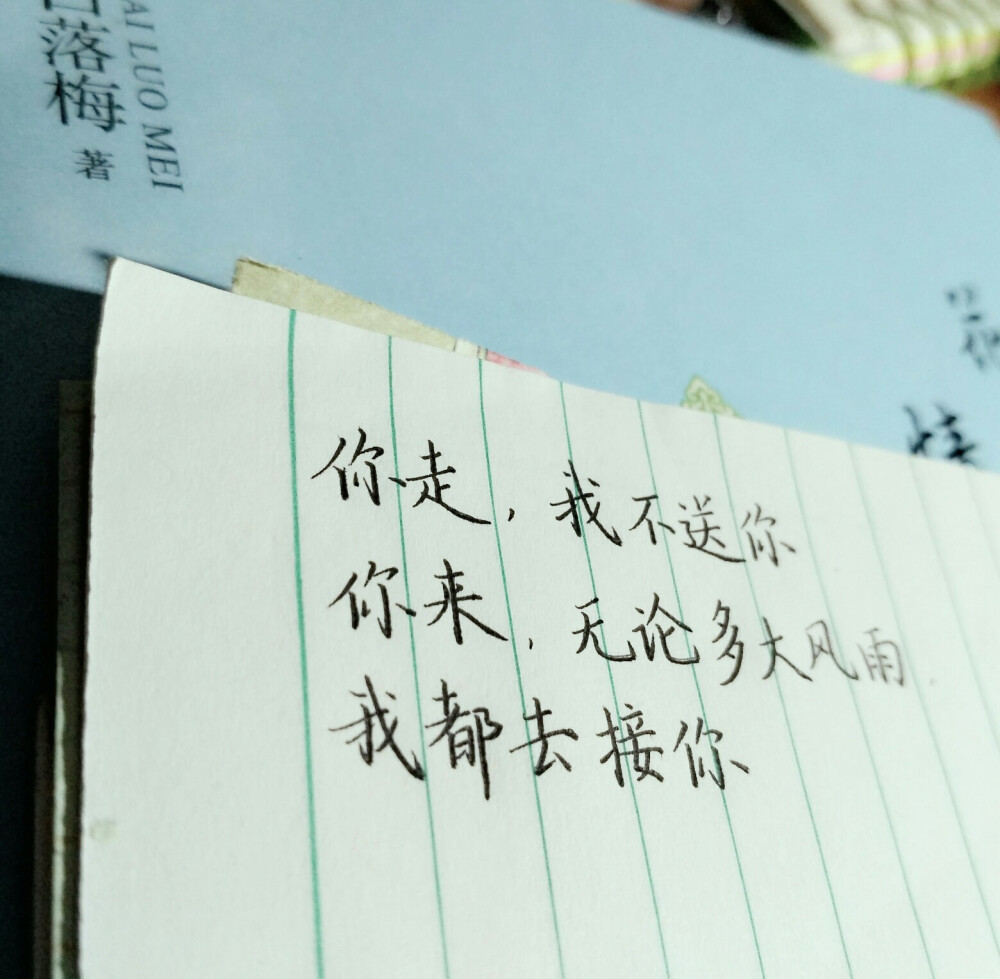 落梅 著
AI LUO MEI
你走，我不送你
你来，无论多大风雨.
我都去接你